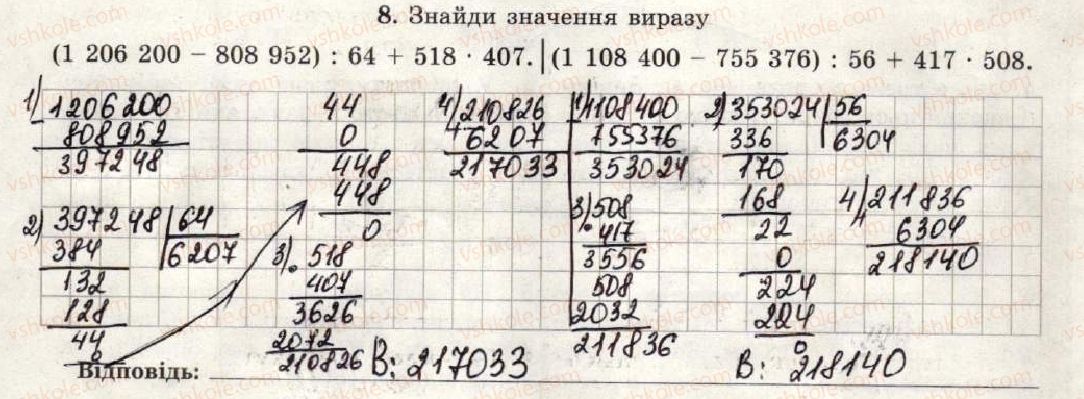 8. Знайди значення виразу
(1 206 200 – 808 952) : 64 + 518 · 407.
(1 108 400 – 755 376) : 56 + 417 · 508.
1) 1206200
808952
397248
2) 397248 64
384 6207
132
128
44
0
44
0
448
448
0
3) 518
407
3626
2072
210826
4) 210826
6207
217033
В: 217033
1) 1108400
755376
353024
2) 353024 56
336 6304
170
168
22
0
224
224
0
3) 508
417
3556
508
2032
211836
4) 211836
6304
218140
В: 218140
Відповідь: